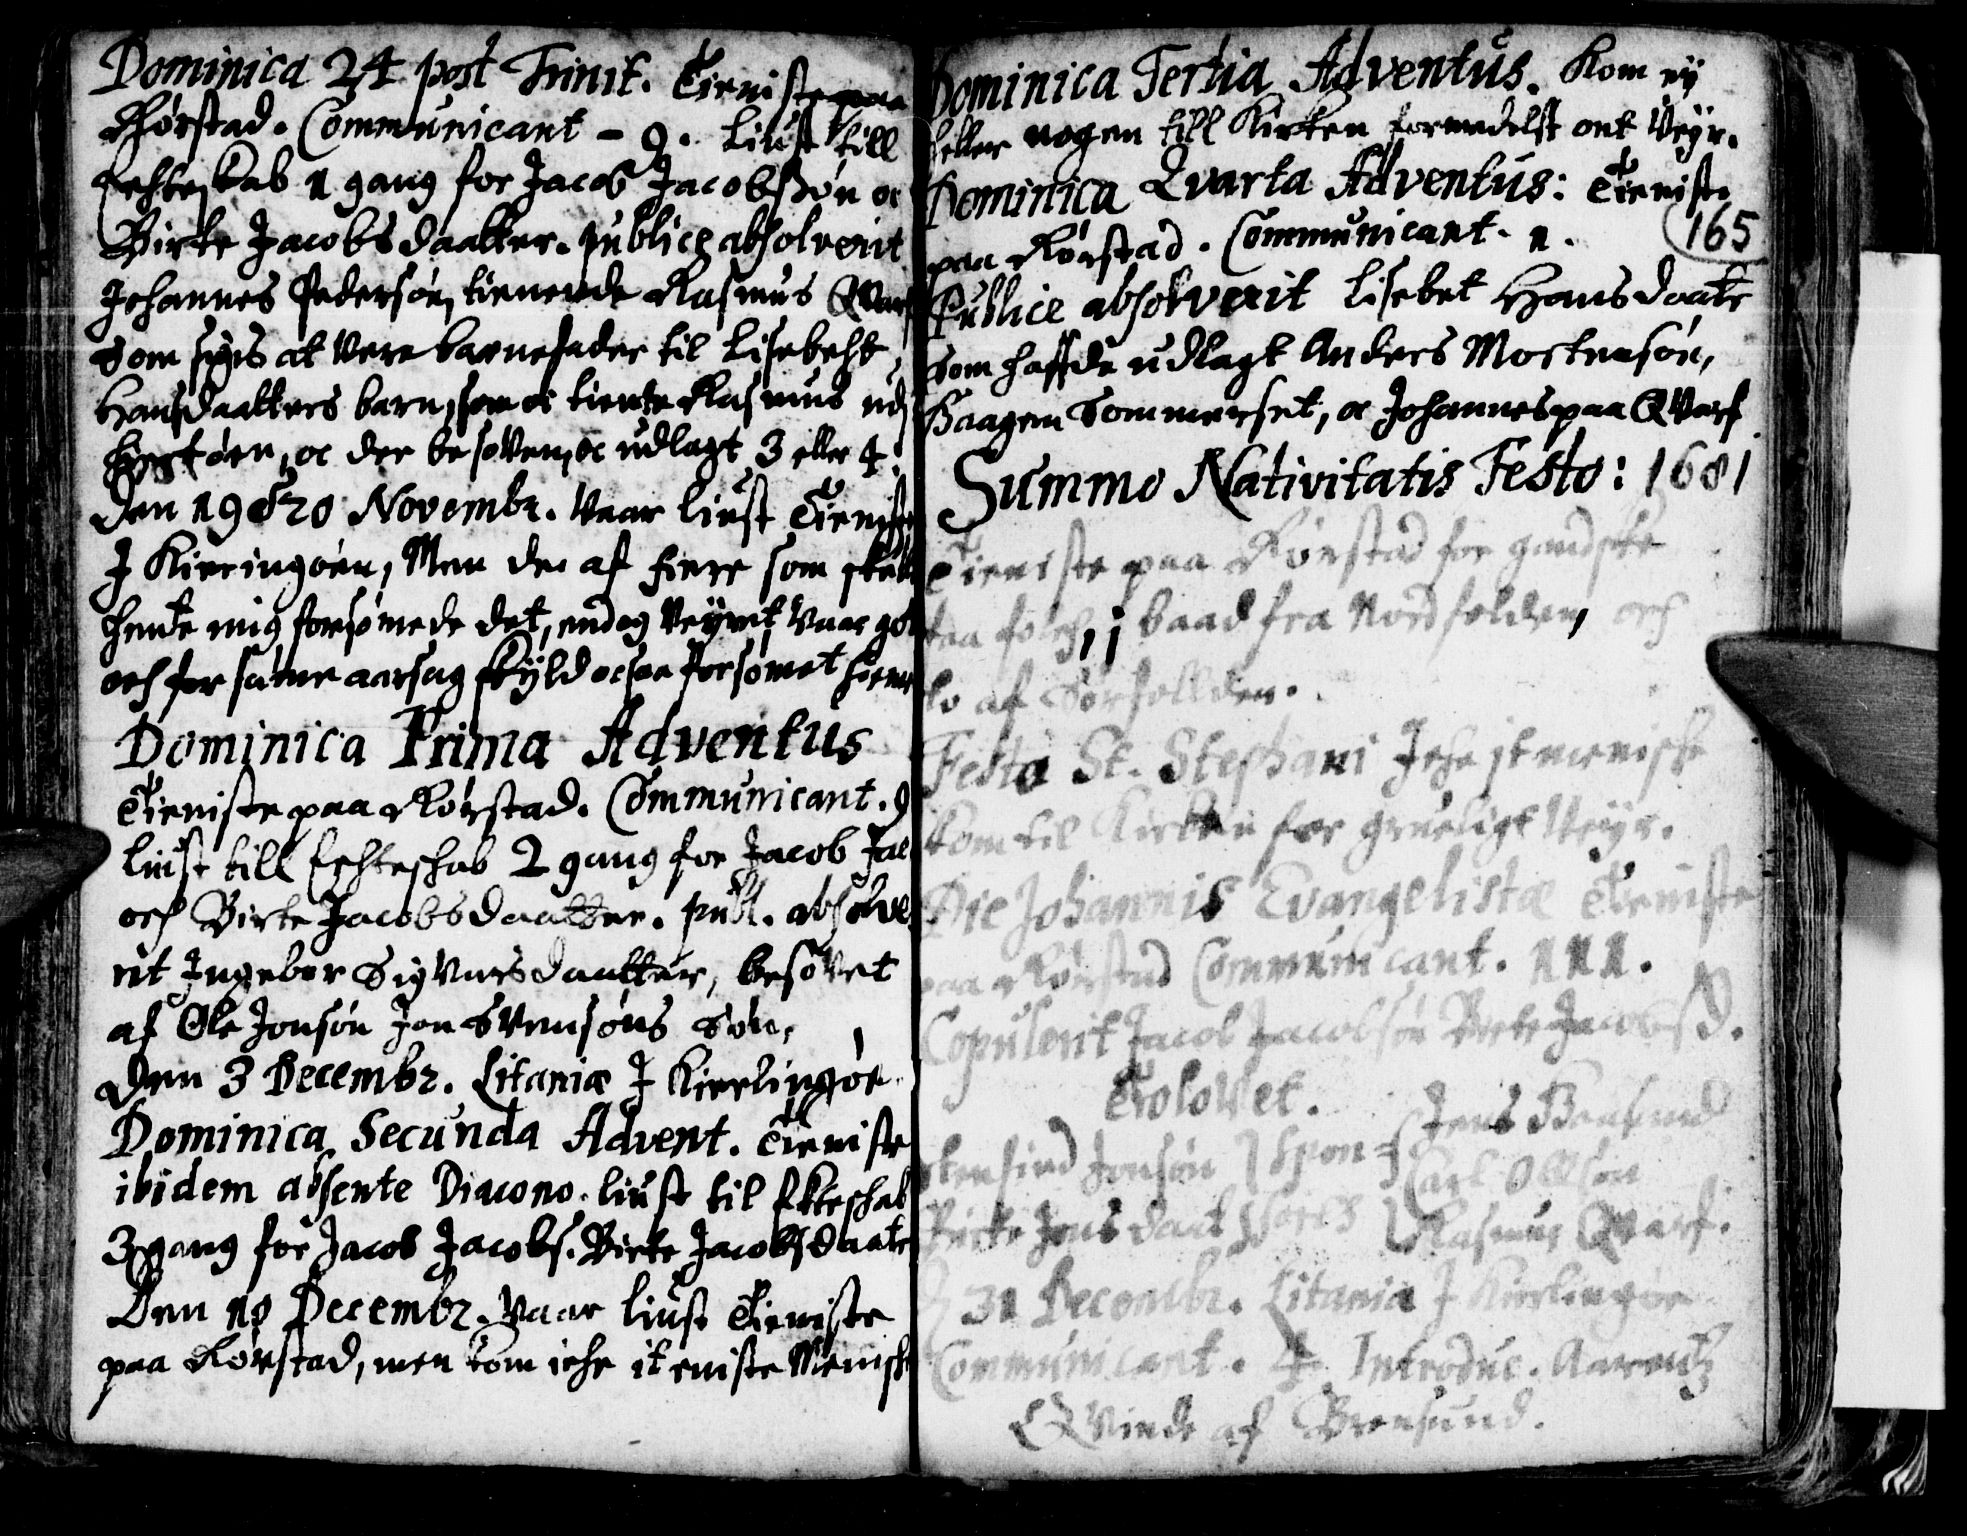 Dominica 24 post Trinit. Tieniste paa
Rørstad. Communicant - 9. liust till
Echteskab 1 gang for Jacob Jacobssøn oc
Birte Jacobsdaatter. publice absolverit
Johannes Pedersøn, tienende Rasmus Qvarf
som sigis at vere barnefader til Lisebeht
Hansdaatters barn, som oc tiente Rasmus
oc der besoven, oc udlagt 3 eller 4.
Den 19 & 20 Novembr. Vaar liust Tieniste
J Kieringøen, Men de af fiere som skulle
hente mig forsømede det, endog Veyret Vaar got
och for samme aarsag skÿld ocsaa forsømet hieme
Dominica Prima Adventus
Tieniste paa Rørstad. Communicant. 9
liust till Echteskab 2 gang for Jacob Jac
och Birte Jacobsdaatter. publ. absolve
rit Ingebor Sigvarsdaatter, besovet
af Ole Jonsøn Jon Svensøns Søn,
Den 3 Decembr. Litania J Kierlingøe.
Dominica Secunda Advent. Tieniste
ibidem absente Diacono. liust til Ekteschab
3 gang for Jacob Jacobs. Birte Jacobsdaatr
Den 10 Decembr. Vaar liust Tieniste
paa Rørstad, men kom iche it eniste Meniske
Dominica Tertia Adventus. Kom eÿ
heller nogen till Kirken formedelst ont Veÿr.
Dominica Qvarta Adventus: Tieniste
paa Rørstad. Communicant. 1.
165
Publice absolverit Lisebet Hansdaatr
som haffde udlagt Anders Mortensøn,
Haagen Sommerset, oc Johannes paa Qvarf
Summo Nativitatis Festo: 1681
Tieniste paa Rørstad for gandske
faa folch, 1 baad fra Nordfolden, och
to af Sørfollden.
Festo St. Stephani Iche it meniske
kom til Kirken for grueligt Veÿr.
Die Johannis Evangelistæ Tieniste
paa Rørstad Communicant. 111.
Copulerit Jacob Jacobsøn Birte Jacobsd.
Trolovet.
Jonsøn } Spon- { Jens
Carl Ollsøn
Birte Jensdaat } sores { Rasmus Qvarf.
D 31 Decembr. Litania J Kierlingøe
Communicant. 4. Introduc. Aarentz
Qvinde af Brensund.